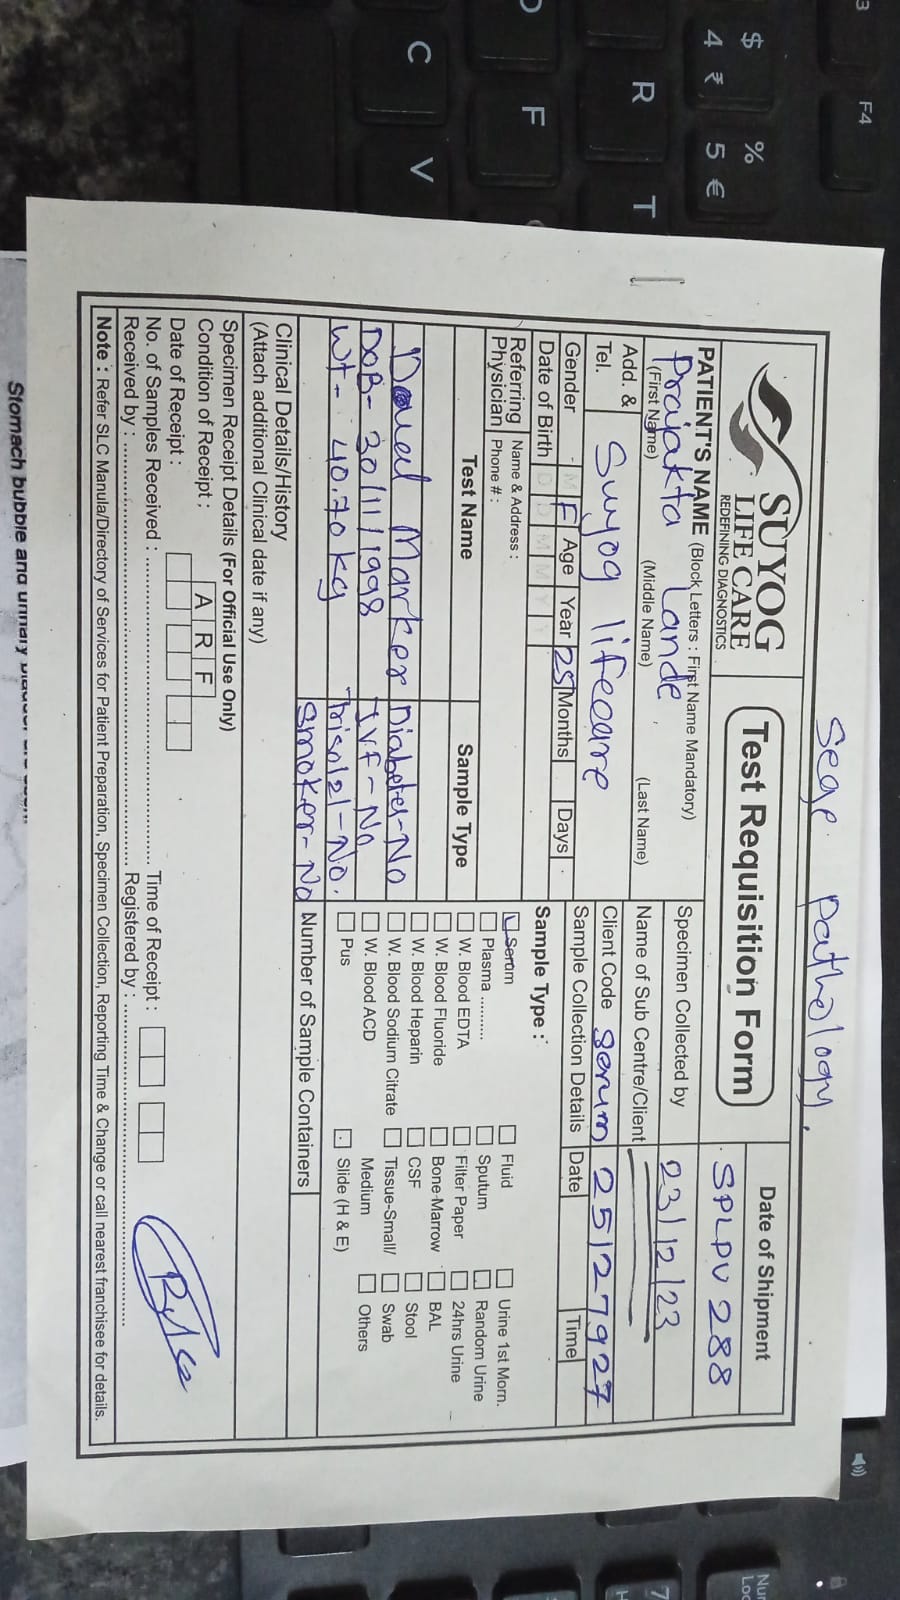 Sege pathology.
SUYOG
LIFE CARE
REDEFINING DIAGNOSTICS
Test Requisition Form
Date of Shipment
SPLPU 288
PATIENT'S NAME (Block Letters : First Name Mandatory)
Prajakta Lande
(First Name) (Middle Name) (Last Name)
Specimen Collected by 23/12/23
Add. &
Tel. Suyog lifecare
Name of Sub Centre/Client
Client Code Serum 25127927
Gender - M F Age Year 25 Months Days
Sample Collection Details Date Time
Date of Birth D D M M Y Y
Referring Physician
Name & Address :
Phone # :
Sample Type :
Serum
Plasma ..........
W. Blood EDTA
W. Blood Fluoride
W. Blood Heparin
W. Blood Sodium Citrate
W. Blood ACD
Pus
Fluid
Sputum
Filter Paper
Bone-Marrow
CSF
Tissue-Small/
Medium
Slide (H & E)
Urine 1st Morn.
Random Urine
24hrs Urine
BAL
Stool
Swab
Others
Test Name Sample Type
Marker Diabetes-No
DOB- 30/11/1998 IVF-No
Wt- 40.70 kg Triso/21-No.
Smoker-No
Number of Sample Containers
Clinical Details/History
(Attach additional Clinical date if any)
Specimen Receipt Details (For Official Use Only)
Condition of Receipt : A R F
Date of Receipt : Time of Receipt :
No. of Samples Received :
Received by : Registered by :
Note : Refer SLC Manula/Directory of Services for Patient Preparation, Specimen Collection, Reporting Time & Change or call nearest franchisee for details.
Stomach bubble and urinary
F4
$
4 ₹
%
5 €
R
T
D
F
C
V